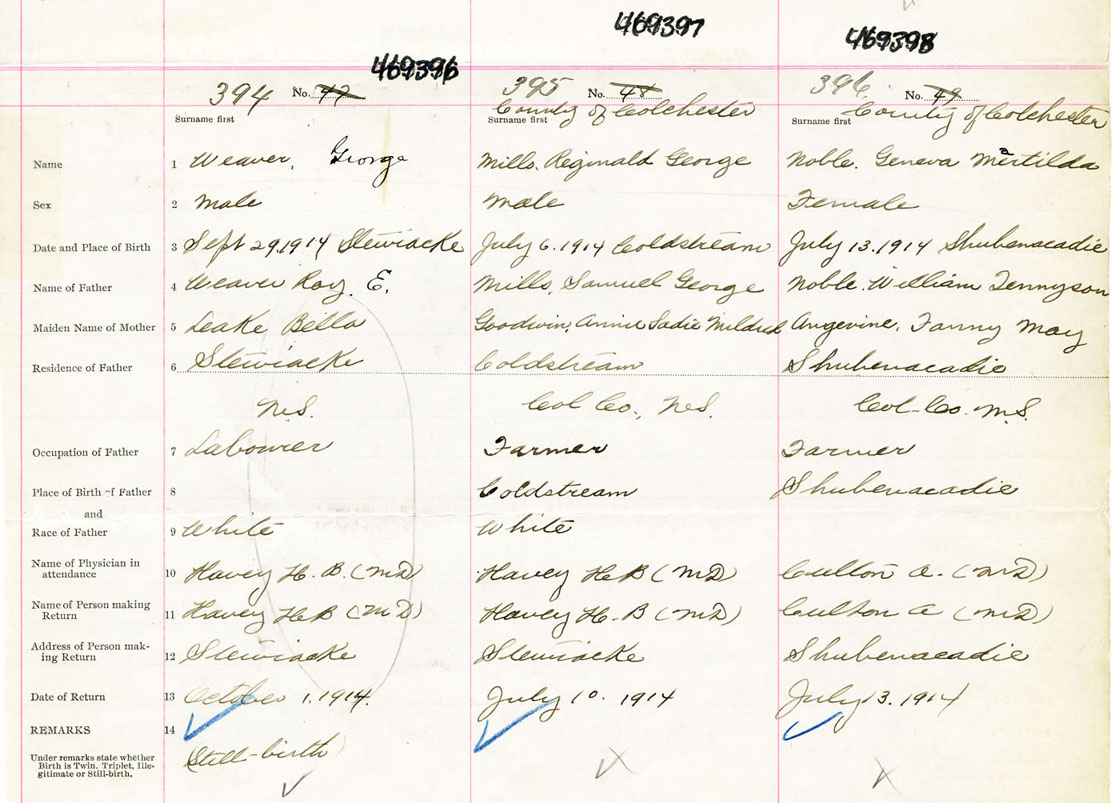 469396 469397 469398
394 No. 47 395 No. 48 396 No. 49
County of Colchester County of Colchester
Surname first Surname first Surname first
Name 1 Weaver, George Mills, Reginald George Noble. Geneva Matilda
Sex 2 Male Male Female
Date and Place of Birth 3 Sept 29,1914 Stewiacke July 6.1914 Coldstream July 13.1914 Shubenacadie
Name of Father 4 Weaver Roy. E. Mills, Samuel George Noble. William Tennyson
Maiden Name of Mother 5 Leake Bella Goodwin, Annie Sadie Mildred Angevine, Fanny May
Residence of Father 6 Stewiacke Coldstream Shubenacadie
N.S. Col Co., N.S. Col-Co. N.S.
Occupation of Father 7 Labourer Farmer Farmer
Place of Birth of Father 8 Coldstream Shubenacadie
and
Race of Father 9 White White
Name of Physician in
attendance 10 Havey H. B. (MD) Havey H B (MD) Culton A. (MD)
Name of Person making
Return 11 Havey H B (MD) Havey H. B (MD) Culton A (MD)
Address of Person mak-
ing Return 12 Stewiacke Stewiacke Shubenacadie
Date of Return 13 October 1,1914. July 10. 1914 July 13.1914
REMARKS 14
Under remarks state whether
Birth is Twin, Triplet, Ille-
gitimate or Still-birth.
(Still-birth)